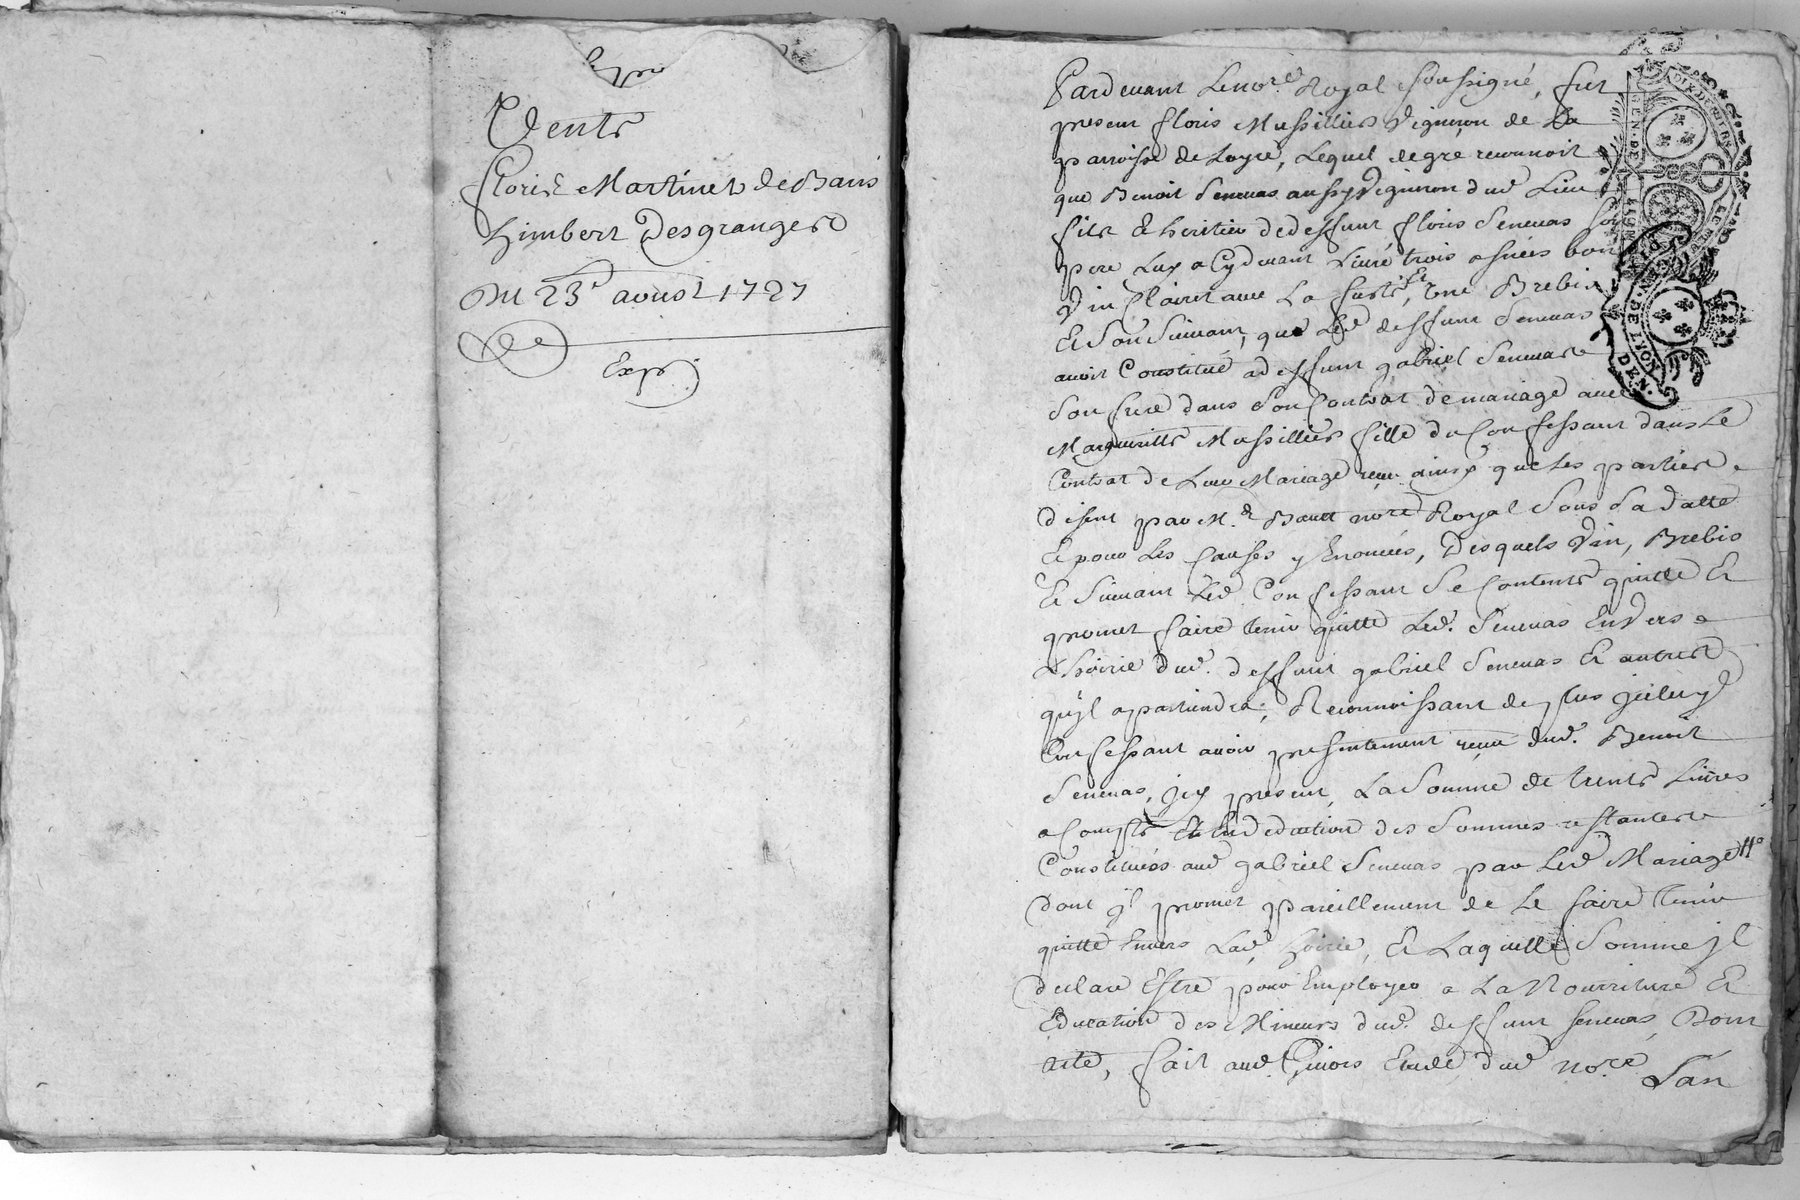 Vente
Floris Martinet de Bans
himbert Desgranges
Du 23e aoust 1727
Exp
Pardevant Le nore. Royal soussigné, fut
present floris Massillier Vigneron de La
parroisse de Loyre, Lequel de gré reconnoit
que Benoit Senevas aussy Vigneron dud. Lieu
fils Et heritier de deffunt floris Senevas son
pere Luy a Cydevant Livré trois asnées bon
Vin Clairet avec La fuste, Et Une Brebie
Et Son Suivant, que Led. deffunt Senevas
avoit Constitué a deffunt gabriel Senevas
Son frere dans Son Contrat de mariage avec
Margueritte Massillier fille du Confessant dans Le
Contrat de Leur Mariage reçu ainsy que Les parties
disent par Me. nore Royal Sous Sa datte
Et pour Les Causes y Enoncées, Desquels Vin, Brebis
Et Suivant Led. Confessant Se Contente quitte Et
promet faire tenir quitte Led. Senevas Envers
L'hoirie dud. deffunt gabriel Senevas Et autres
qu'jl apartiendra; Reconnoissant de plus jceluy
Confessant avoir presentement reçu dud. Benoit
Senevas, jcy present, La Somme de trente Livres
a Compte Et En deduction des Sommes restantes
Constituées aud. gabriel Senevas par Led. Mariage
dont jl promet pareillement de Le faire tenir
quitte Envers Lad. hoirie, Et Laquelle Somme jl
declare Estre pour Employer a La Nourriture Et
Education des Mineurs dud. deffunt senevas, Dont
acte, fait aud. Givors Etude dud. nore. L'an
GEN. DE
GEN. DE LYON
DEN.